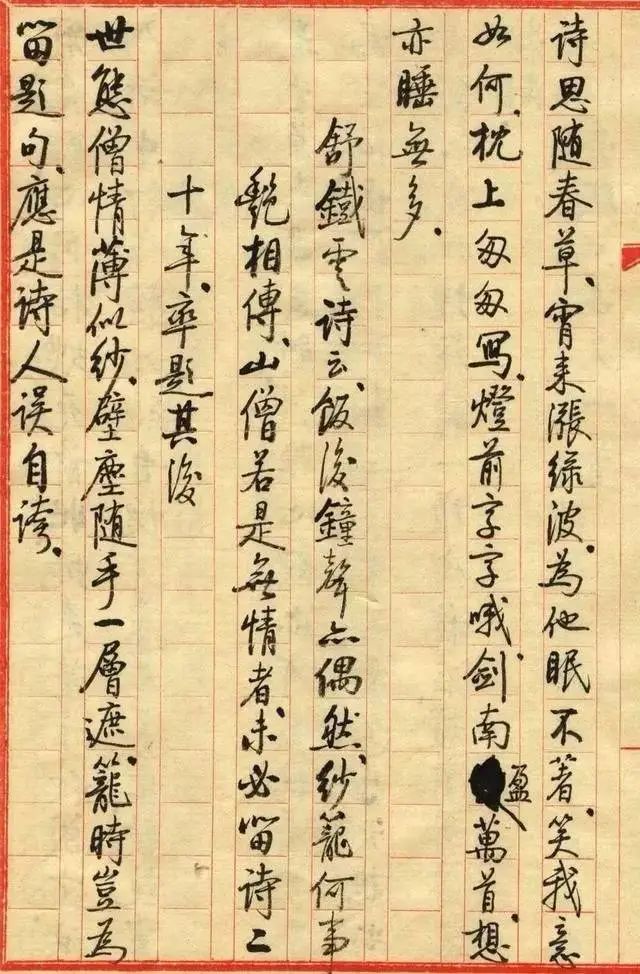 诗思随春草、宵来漲绿波、為他眠不著、笑我意
如何、枕上匆匆寫、燈前字字哦、劍南盈萬首、想
亦睡無多、
舒鐵雲诗云、飯後鐘聲亦偶然、紗籠何事
艷相傳、山僧若是無情者、未必留诗二
十年、率題其後
世態僧情薄似紗、壁塵随手一層遮、籠時豈為
留題句、應是诗人误自誇、